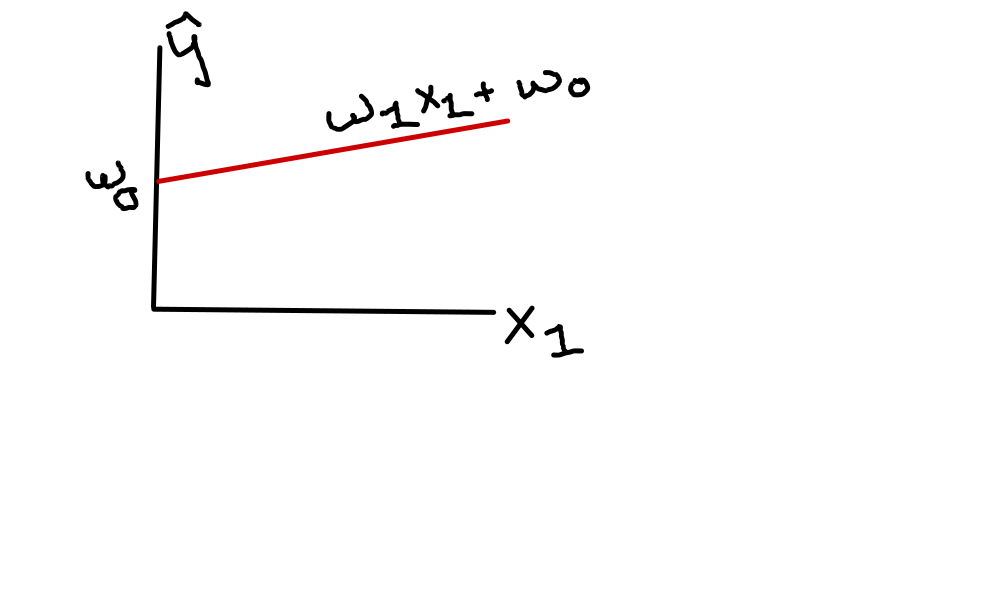 ŷ
w₁x₁ + w₀
w₀
x₁